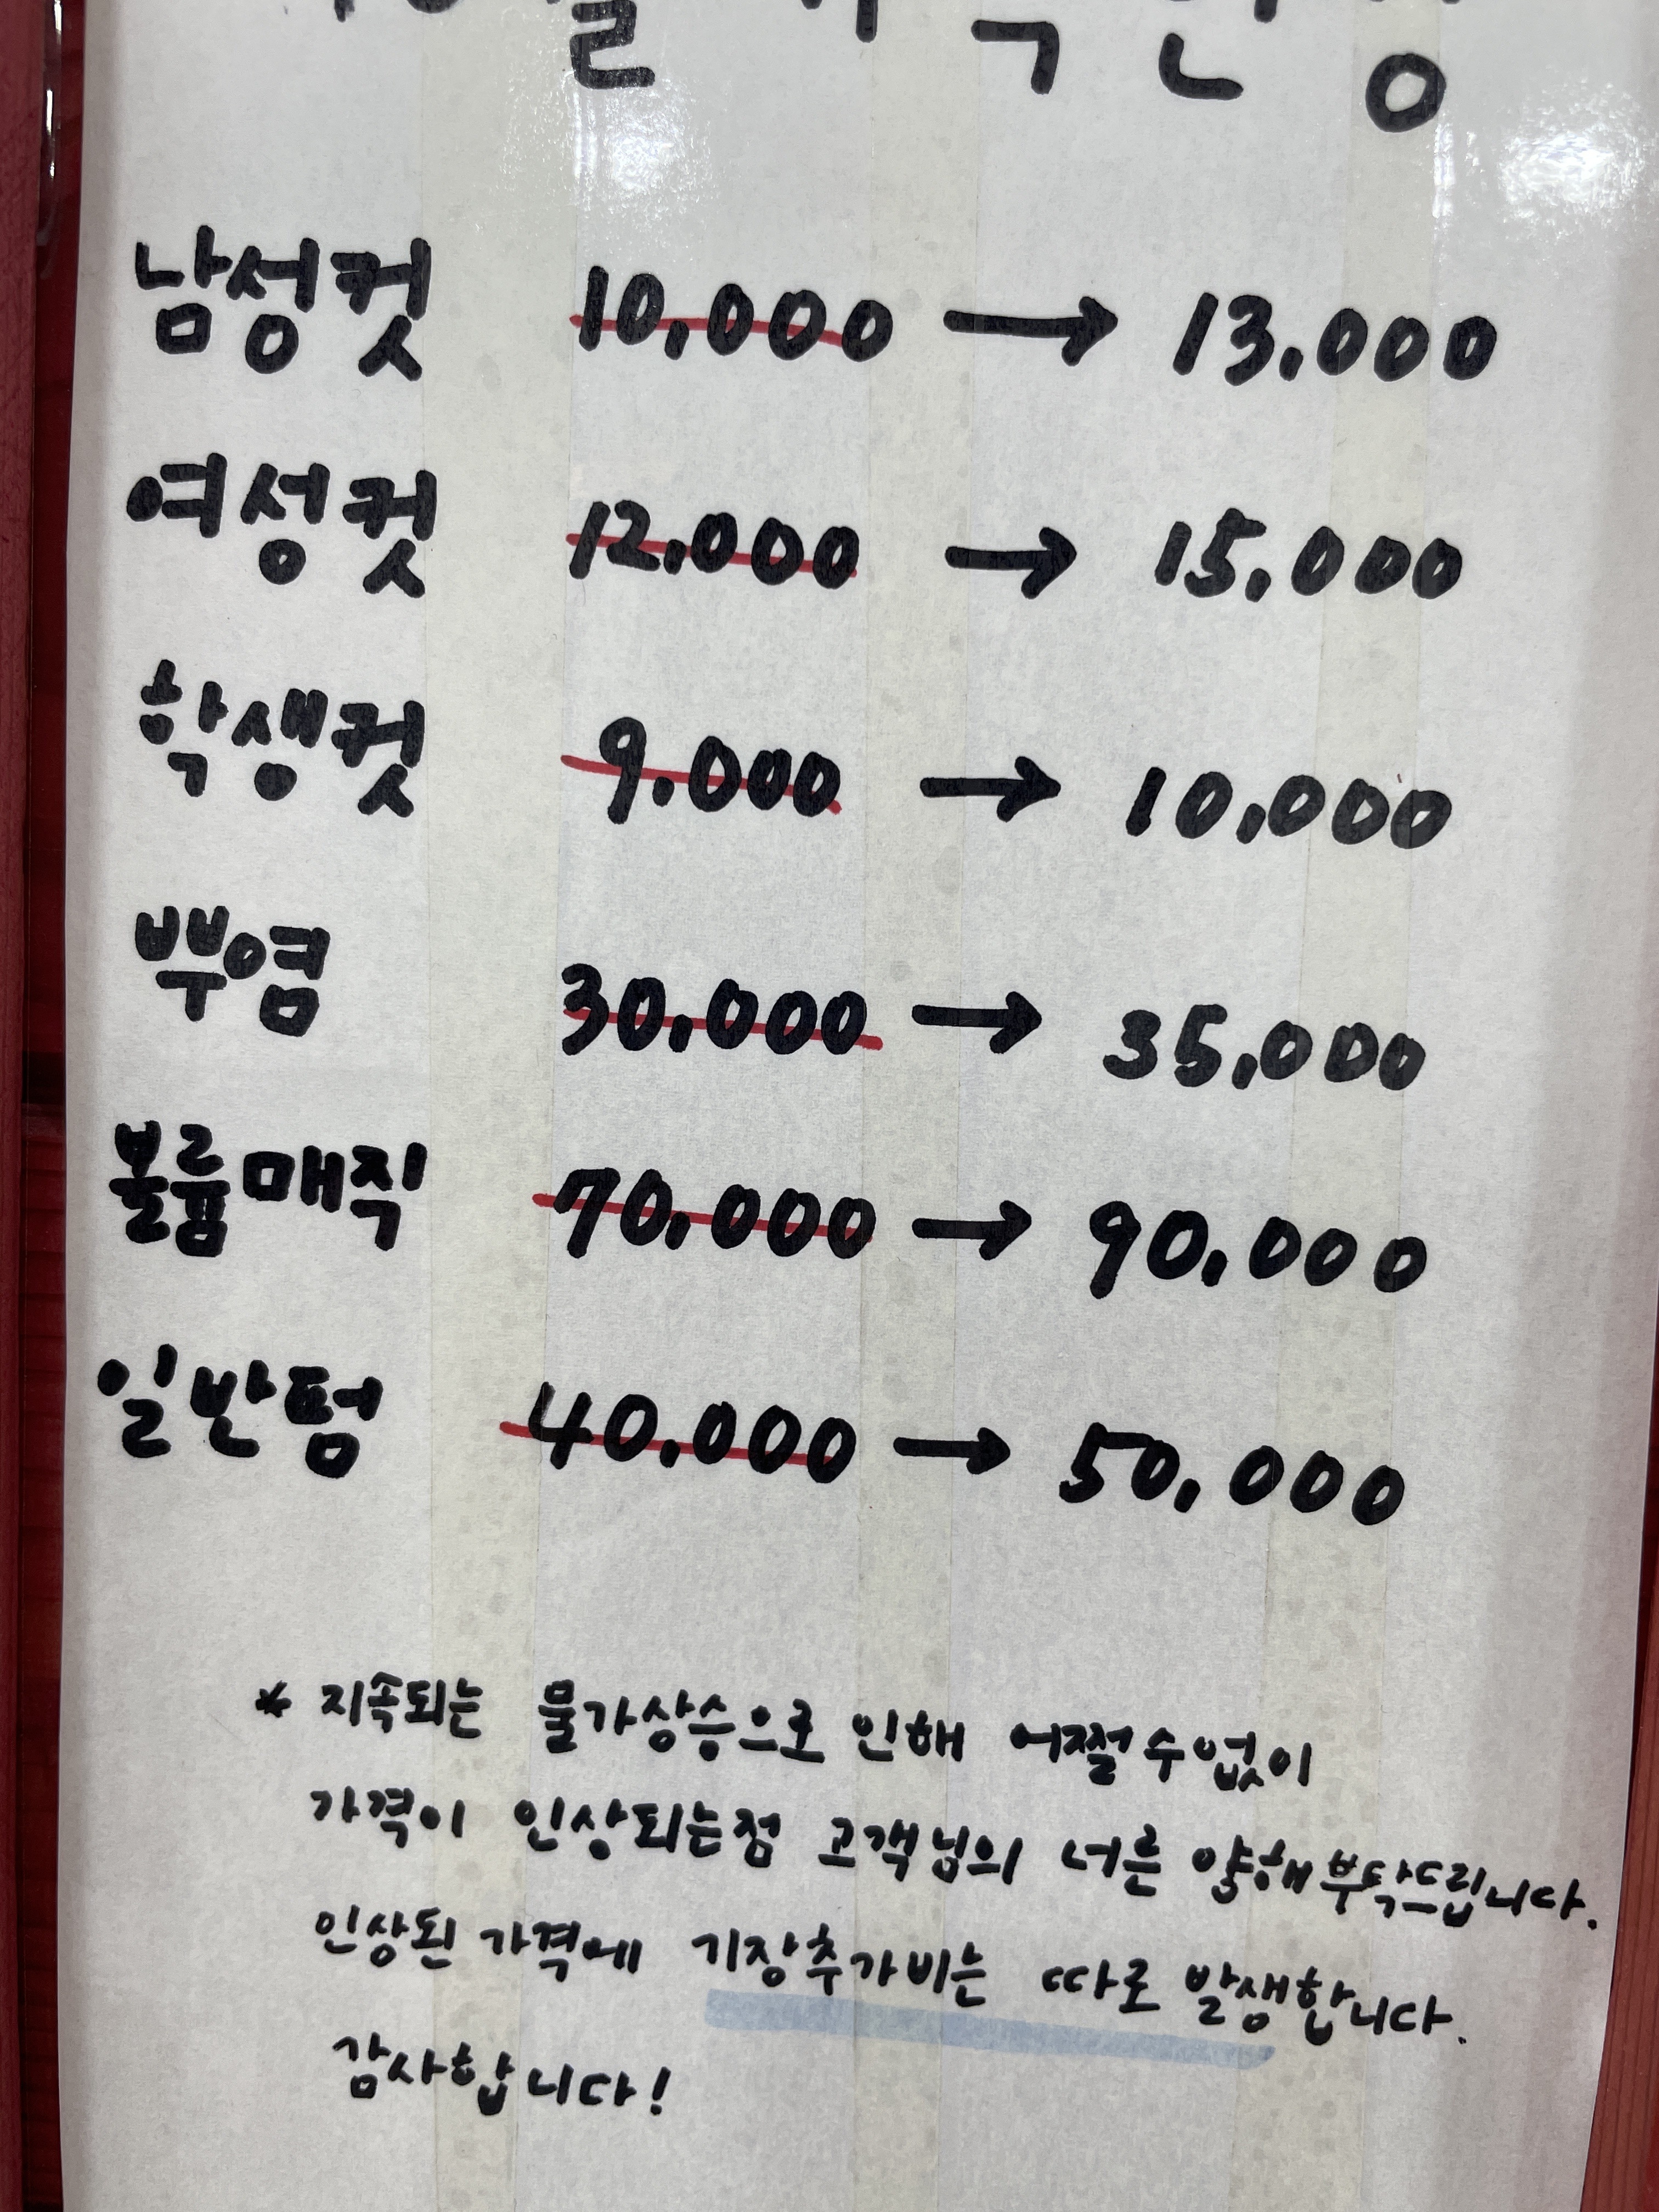 남성컷 10,000 → 13,000
여성컷 12,000 → 15,000
학생컷 9.000 → 10,000
뿌염 30,000 → 35,000
볼륨매직 70,000 → 90,000
일반펌 40,000 → 50,000
* 지속되는 물가상승으로 인해 어쩔수없이
가격이 인상되는점 고객님의 너른 양해부탁드립니다.
인상된 가격에 기장추가비는 따로 발생합니다.
감사합니다!